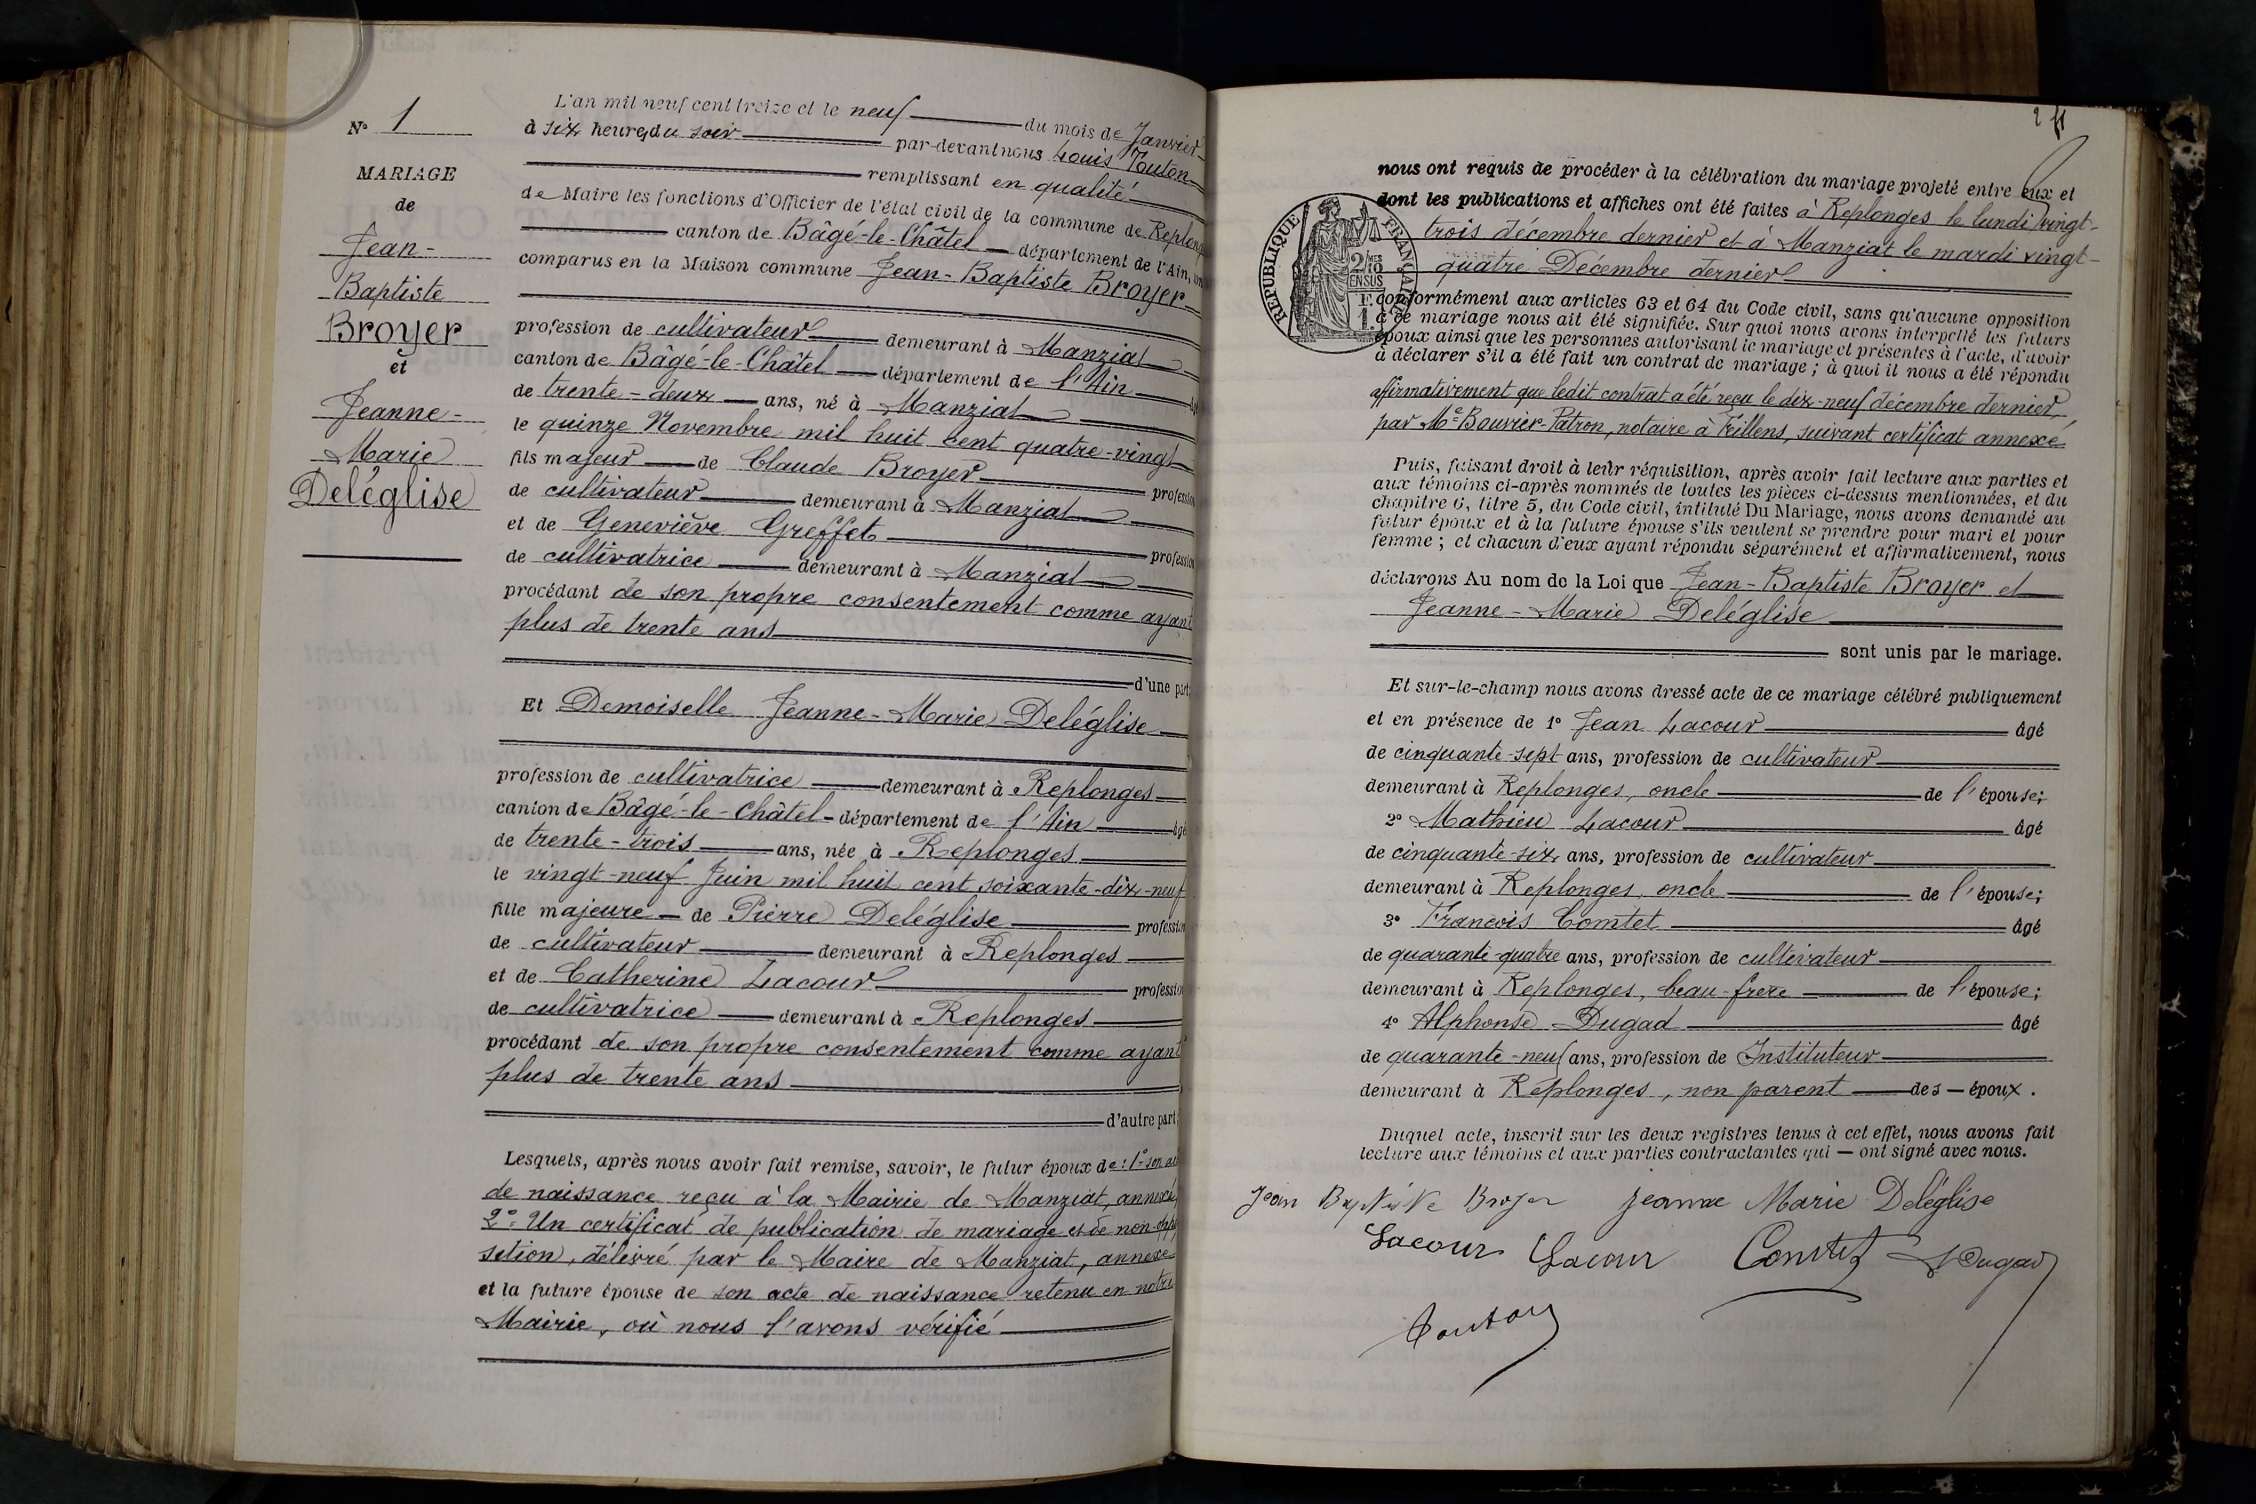 N° 1
MARIAGE
de
Jean-
Baptiste
Broyer
et
Jeanne-
Marie
Deléglise
L'an mil neuf cent treize et le neuf du mois de Janvier
à six heures du soir par-devant nous Louis Tuton
remplissant en qualité
de Maire les fonctions d'Officier de l'état civil de la commune de Replonges
canton de Bâgé-le-Châtel département de l'Ain,
comparus en la Maison commune Jean-Baptiste Broyer
profession de cultivateur demeurant à Manziat
canton de Bâgé-le-Châtel département de l'Ain
de trente-deux ans, né à Manziat
le quinze Novembre mil huit cent quatre-vingt
fils majeur de Claude Broyer profession
de cultivateur demeurant à Manziat
et de Geneviève Greffet profession
de cultivatrice demeurant à Manziat
procédant de son propre consentement comme ayant
plus de trente ans
d'une part;
Et Demoiselle Jeanne-Marie Deléglise
profession de cultivatrice demeurant à Replonges
canton de Bâgé-le-Châtel département de l'Ain âgé
de trente-trois ans, née à Replonges
le vingt-neuf Juin mil huit cent soixante-dix-neuf
fille majeure de Pierre Deléglise profession
de cultivateur demeurant à Replonges
et de Catherine Lacour profession
de cultivatrice demeurant à Replonges
procédant de son propre consentement comme ayant
plus de trente ans
d'autre part;
Lesquels, après nous avoir fait remise, savoir, le futur époux de: 1° son
de naissance reçu à la Mairie de Manziat, annexé
2°. Un certificat de publication de mariage et de non-oppo
sition, délivré par le Maire de Manziat, annexé
et la future épouse de son acte de naissance retenu en notre
Mairie, où nous l'avons vérifié
2
nous ont requis de procéder à la célébration du mariage projeté entre eux et
dont les publications et affiches ont été faites à Replonges le lundi vingt-
trois décembre dernier et à Manziat le mardi vingt-
quatre Décembre dernier
REPUBLIQUE FRANÇAISE
2/10 EN SUS
F. 1.
conformément aux articles 63 et 64 du Code civil, sans qu'aucune opposition
à ce mariage nous ait été signifiée. Sur quoi nous avons interpellé les futurs
époux ainsi que les personnes autorisant le mariage et présentes à l'acte, d'avoir
à déclarer s'il a été fait un contrat de mariage; à quoi il nous a été répondu
affirmativement que ledit contrat a été reçu le dix-neuf décembre dernier,
par Me Bouvier-Patron, notaire à Feillens, suivant certificat annexé
Puis, faisant droit à leur réquisition, après avoir fait lecture aux parties et
aux témoins ci-après nommés de toutes les pièces ci-dessus mentionnées, et du
chapitre 6, titre 5, du Code civil, intitulé Du Mariage, nous avons demandé au
futur époux et à la future épouse s'ils veulent se prendre pour mari et pour
femme; et chacun d'eux ayant répondu séparément et affirmativement, nous
déclarons Au nom de la Loi que Jean-Baptiste Broyer et
Jeanne-Marie Deléglise
sont unis par le mariage.
Et sur-le-champ nous avons dressé acte de ce mariage célébré publiquement
et en présence de 1° Jean Lacour âgé
de cinquante-sept ans, profession de cultivateur
demeurant à Replonges, oncle de l'épouse;
2° Mathieu Lacour âgé
de cinquante-six ans, profession de cultivateur
demeurant à Replonges, oncle de l'épouse;
3° Francois Comtet âgé
de quarante-quatre ans, profession de cultivateur
demeurant à Replonges, beau-frere de l'épouse;
4° Alphonse Dugad âgé
de quarante-neuf ans, profession de Instituteur
demeurant à Replonges, non parent des époux.
Duquel acte, inscrit sur les deux registres tenus à cet effet, nous avons fait
lecture aux témoins et aux parties contractantes qui — ont signé avec nous.
Jean Baptiste Broyer Jeanne Marie Deléglise
Lacour Lacour Comtet Dugad